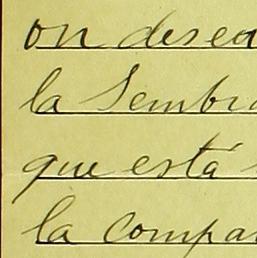 on desea
la Sembra
que está
la compa